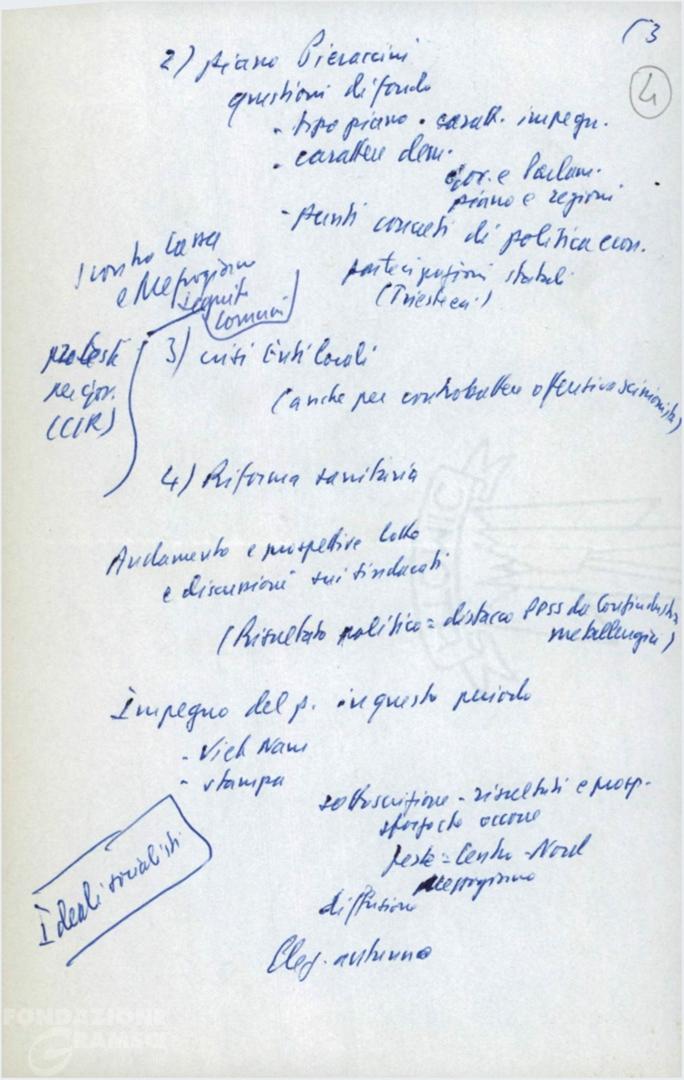 (3
4
2) piano Pieraccini
questioni di fondo
- tipo piano - caratt. impegn.
- carattere dem.
gov. e Parlam.
piano e regioni
- Punti concreti di politica econ.
partecipazioni statali
(Trieste ecc.)
Scontro Cassa
e Mezzogiorno
Comuni
proteste
per gov.
(CIR)
3) crisi Enti locali
(anche per controbattere offensiva scissionista)
4) Riforma sanitaria
Andamento e prospettive lotte
e discussione sui sindacati
(Risultato politico = distacco PPSS da Confindustria
metallurgici)
Impegno del p. in questo periodo
- Viet Nam
- stampa
sottoscrizione - risultati e prosp.
sforzo che occorre
feste = Centro - Nord
Mezzogiorno
diffusione
Elez. autunno
Ideali socialisti
FONDAZIONE
GRAMSCI